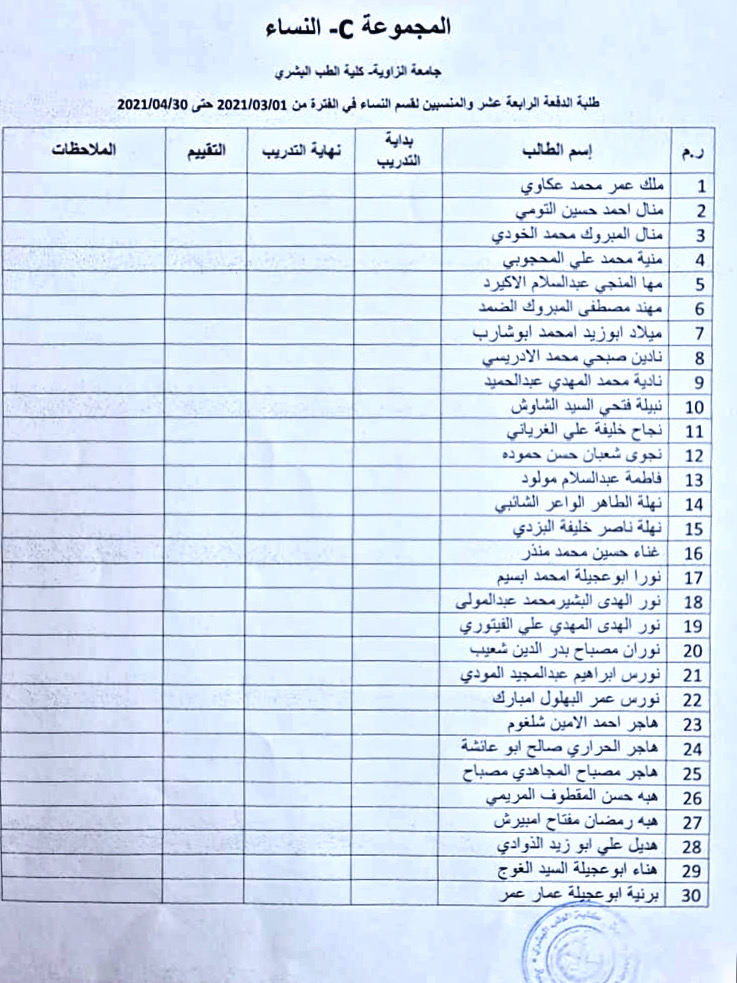 المجموعة C- النساء
جامعة الزاوية- كلية الطب البشري
طلبة الدفعة الرابعة عشر والمنسبين لقسم النساء في الفترة من 2021/03/01 حتى 2021/04/30
ر.م إسم الطالب بداية التدريب نهاية التدريب التقييم الملاحظات
1 ملك عمر محمد عكاوي
2 منال احمد حسين التومي
3 منال المبروك محمد الخودي
4 منية محمد علي المحجوبي
5 مها المنجي عبدالسلام الاكيرد
6 مهند مصطفى المبروك الضمد
7 ميلاد ابوزيد امحمد ابوشارب
8 نادين صبحي محمد الادريسي
9 نادية محمد المهدي عبدالحميد
10 نبيلة فتحي السيد الشاوش
11 نجاح خليفة علي الغرياني
12 نجوى شعبان حسن حموده
13 فاطمة عبدالسلام مولود
14 نهلة الطاهر الواعر الشائبي
15 نهلة ناصر خليفة اليزدي
16 غناء حسين محمد منذر
17 نورا ابوعجيلة امحمد ابسيم
18 نور الهدى البشيرمحمد عبدالمولى
19 نور الهدى المهدي علي الفيتوري
20 نوران مصباح بدر الدين شعيب
21 نورس ابراهيم عبدالمجيد المودي
22 نورس عمر البهلول امبارك
23 هاجر احمد الامين شلغوم
24 هاجر الحراري صالح ابو عائشة
25 هاجر مصباح المجاهدي مصباح
26 هبه حسن المقطوف المريمي
27 هبه رمضان مفتاح امبيرش
28 هديل علي ابو زيد الذوادي
29 هناء ابوعجيلة السيد الغوج
30 برنية ابوعجيلة عمار عمر
كلية الطب البشري